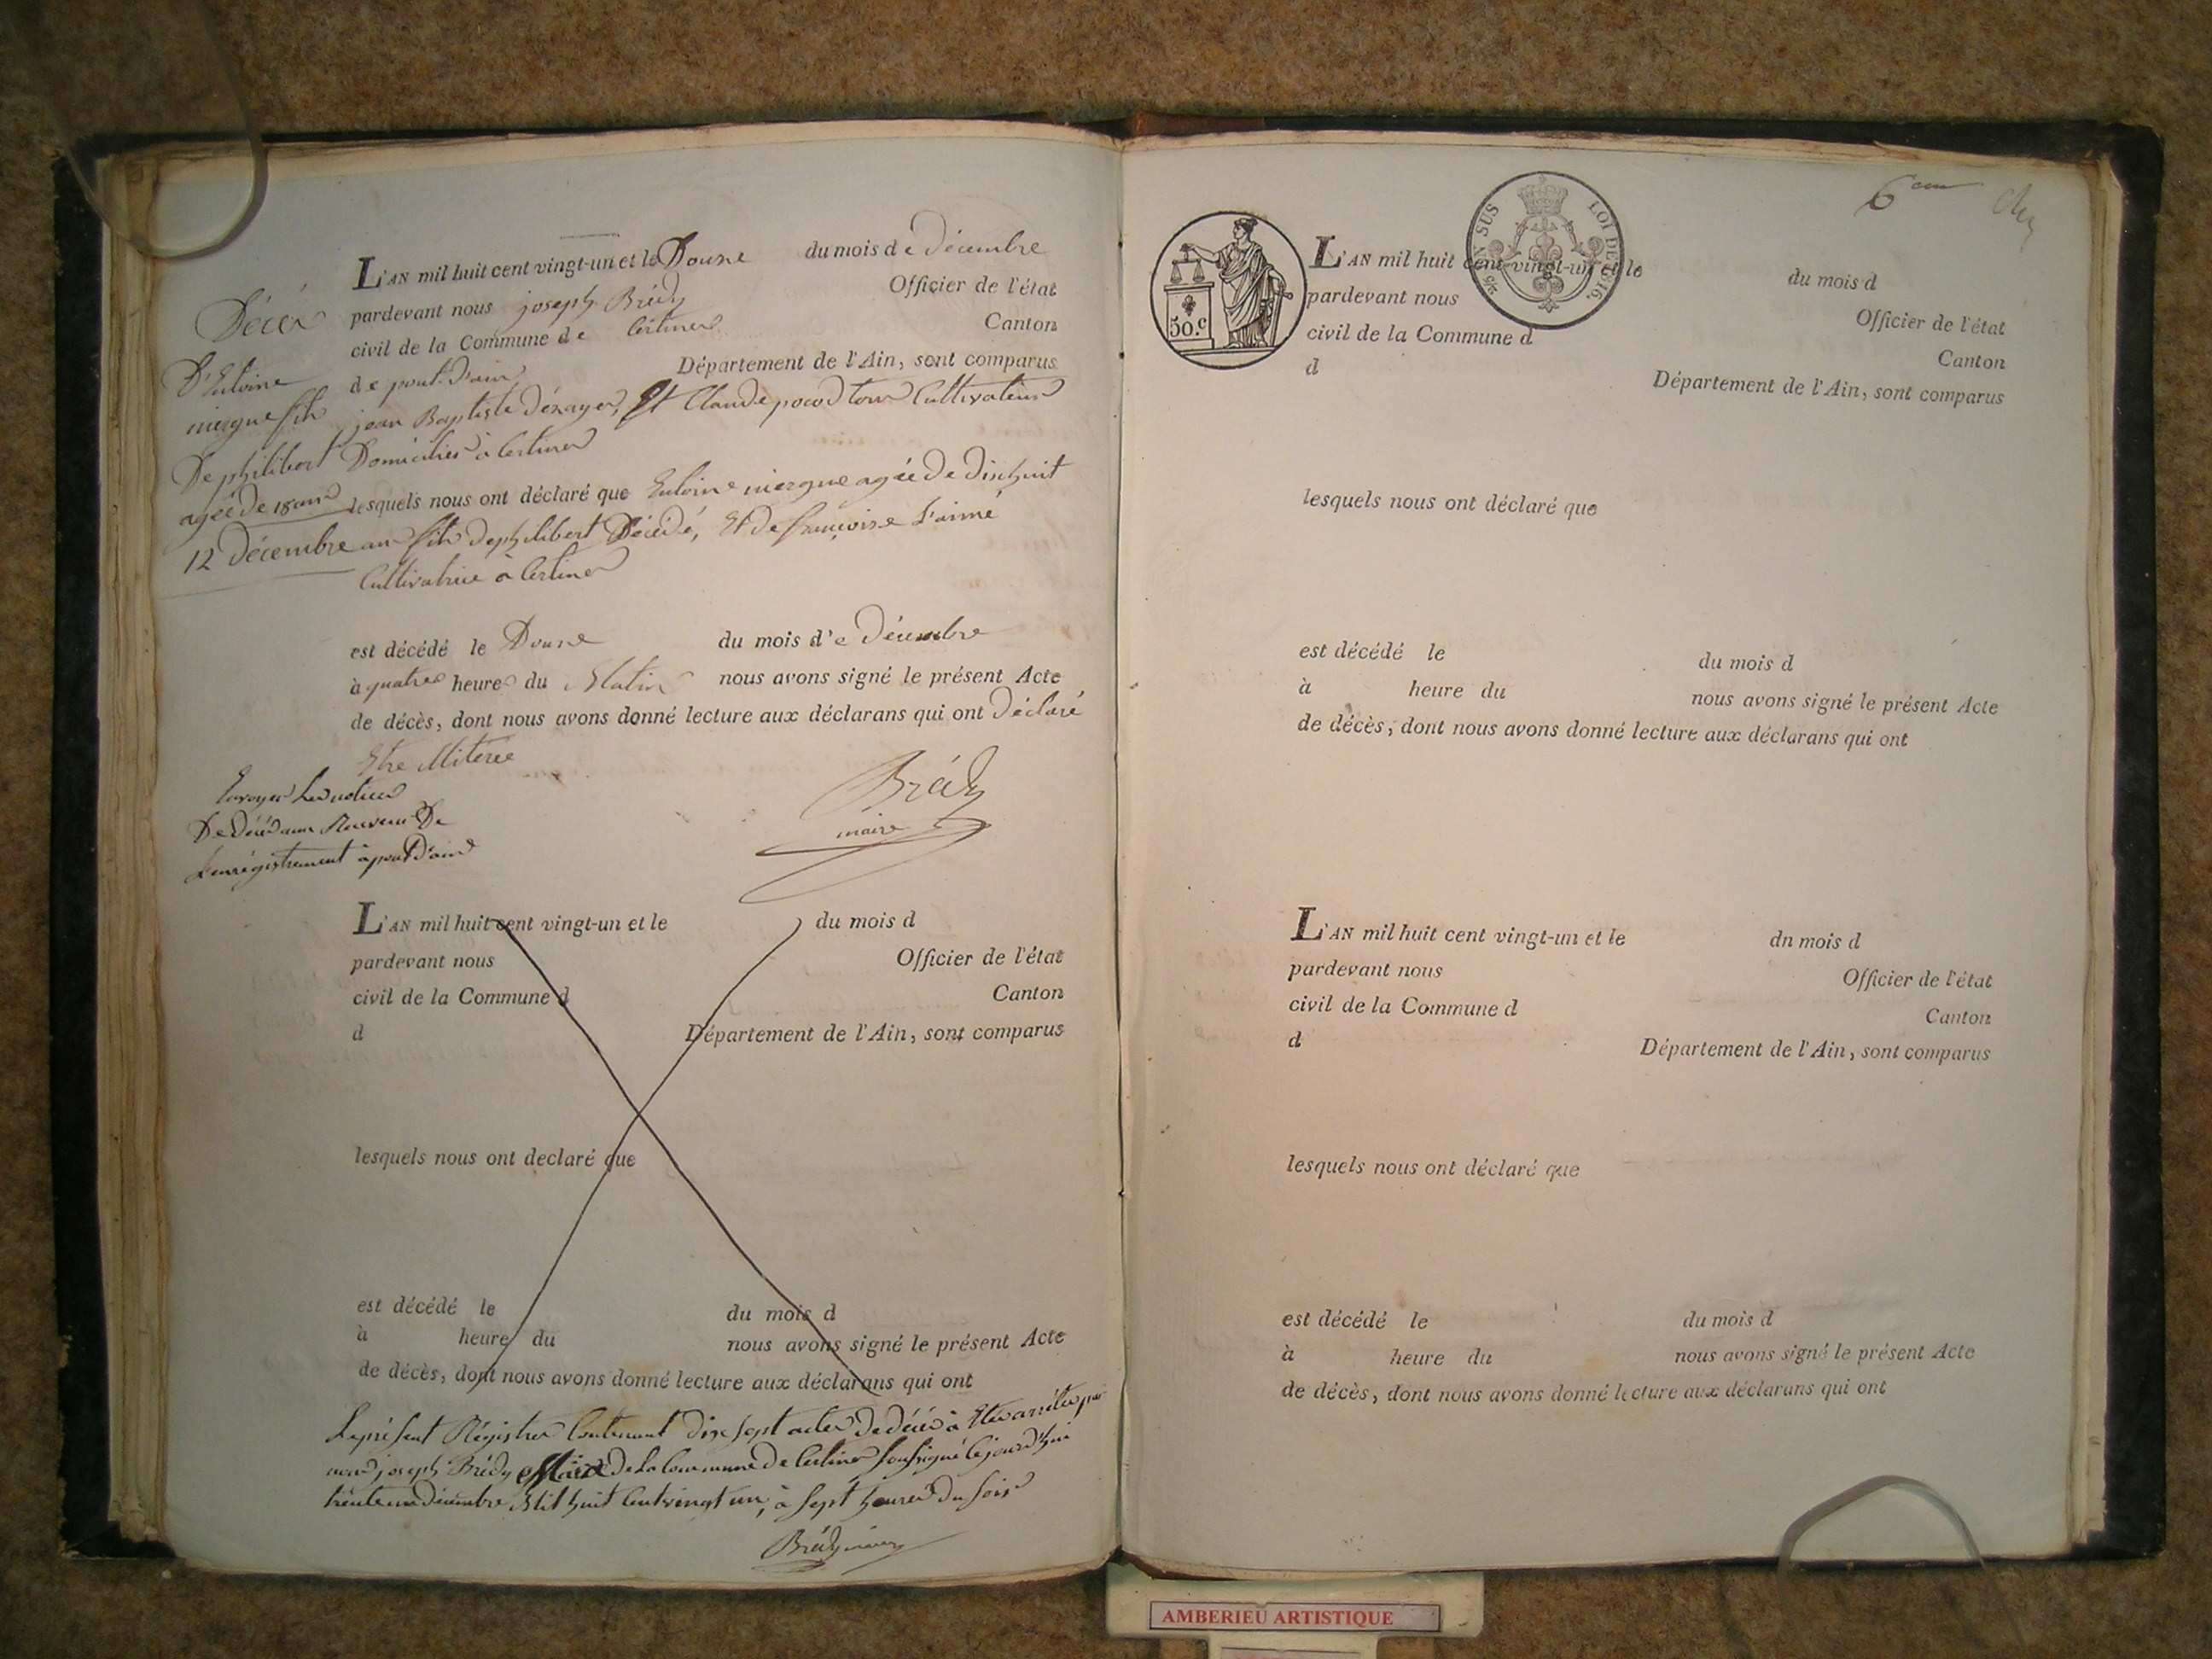 L'AN mil huit cent vingt-un et le Douze du mois de Décembre
pardevant nous joseph Brédy Officier de l'état
civil de la Commune de Certines Canton
de pont-d'ain Département de l'Ain, sont comparus
jean Baptiste Et Claude tous Cultivateurs
Domiciliés à Certines
lesquels nous ont déclaré que Entoine niogue agée de dixhuit
ans fils de philibert Décédé, Et de françoise
Cultivatrice à Certines
est décédé le Douze du mois d'e Décembre
à quatres heures du Matin nous avons signé le présent Acte
de décès, dont nous avons donné lecture aux déclarans qui ont Déclaré
Etre Miterée
Brédy
maire
Décés
D'Entoine
niogue fils
De philibert
agée de 18 ans
12 Décembre
Envoyer les notices
De Décés aux Receveur De
L'enrégistrement à pont D'ain
L'AN mil huit cent vingt-un et le du mois d
pardevant nous Officier de l'état
civil de la Commune d Canton
d Département de l'Ain, sont comparus
lesquels nous ont declaré que
est décédé le du mois d
à heure du nous avons signé le présent Acte
de décès, dont nous avons donné lecture aux déclarans qui ont
Le présent Régistre Contenant dix sept actes de décés à Eté arrêté par
nous joseph Brédy Maire de la Commune de Certines soussigné Cejourd'hui
trente un décembre Mil huit Cent vingt un, à sept heures du soir
Brédy maire
6eme
50.c
EN SUS
LOI DE 1816.
L'AN mil huit cent vingt-un et le du mois d
pardevant nous Officier de l'état
civil de la Commune d Canton
d Département de l'Ain, sont comparus
lesquels nous ont déclaré que
est décédé le du mois d
à heure du nous avons signé le présent Acte
de décès, dont nous avons donné lecture aux déclarans qui ont
L'AN mil huit cent vingt-un et le dn mois d
pardevant nous Officier de l'état
civil de la Commune d Canton
d Département de l'Ain, sont comparus
lesquels nous ont déclaré que
est décédé le du mois d
à heure du nous avons signé le présent Acte
de décès, dont nous avons donné lecture aux déclarans qui ont
AMBERIEU ARTISTIQUE